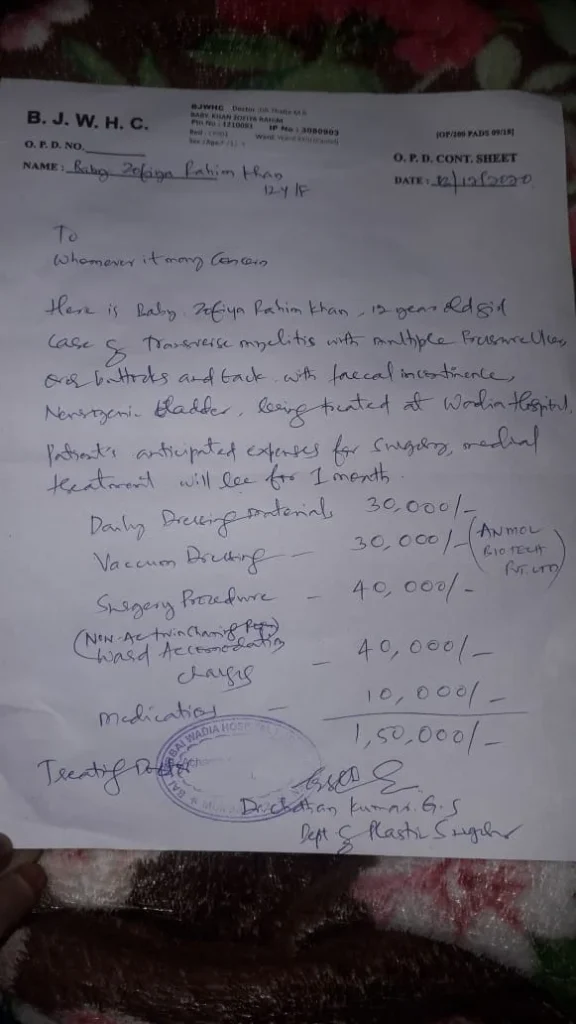 B. J. W. H. C.
BJWHC Doctor
BABY KHAN ZOFIYA RAHIM
IP No : 3080903
[OP/100 PADS 09/18]
O. P. D. NO.
O. P. D. CONT. SHEET
NAME : Baby Zofiya Rahim Khan
DATE : 12/12/2020
12 y/F
To
Whomever it may Concern
Here is Baby Zofiya Rahim Khan, 12 year old girl
Case of Transverse myelitis with multiple Pressure Ulcers
over buttocks and back with faecal incontinence,
Neurogenic bladder, being treated at Wadia Hospital.
Patient's anticipated expenses for Surgery, medical
treatment will be for 1 month.
Daily Dressing materials 30,000/-
Vaccum Dressing - 30,000/- (ANMOL
BIOTECH
PVT. LTD)
Surgery Procedure - 40,000/-
Ward Accomodation
charges - 40,000/-
Medication - 10,000/-
1,50,000/-
BAI WADIA HOSPITAL
Treating Doctor
Dr. Chethan Kumar. G. S
Dept of Plastic Surgery